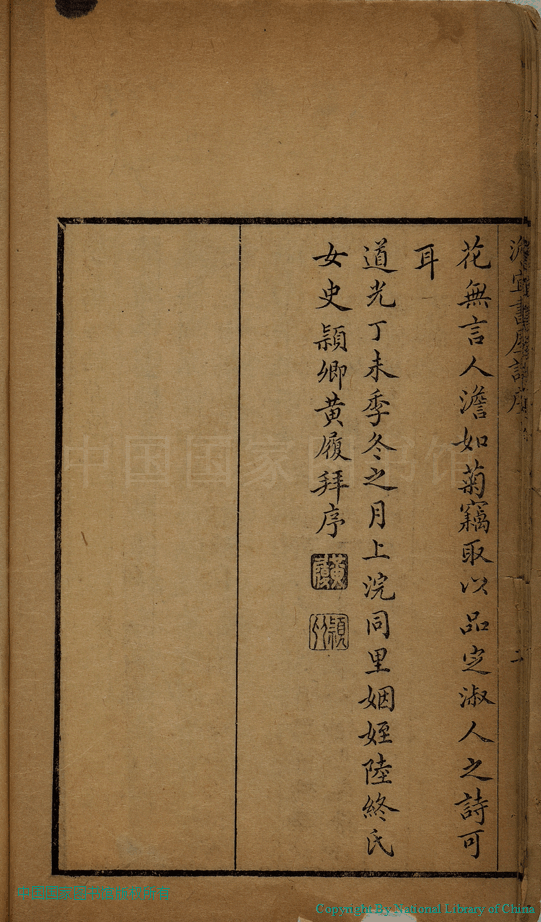 澹宜書屋詩序
花無言人澹如菊竊取以品定淑人之詩可
耳
道光丁未季冬之月上浣同里姻姪陸終氏
女史穎卿黃履拜序
黃履
中国国家图书馆
Copyright By National Library of China